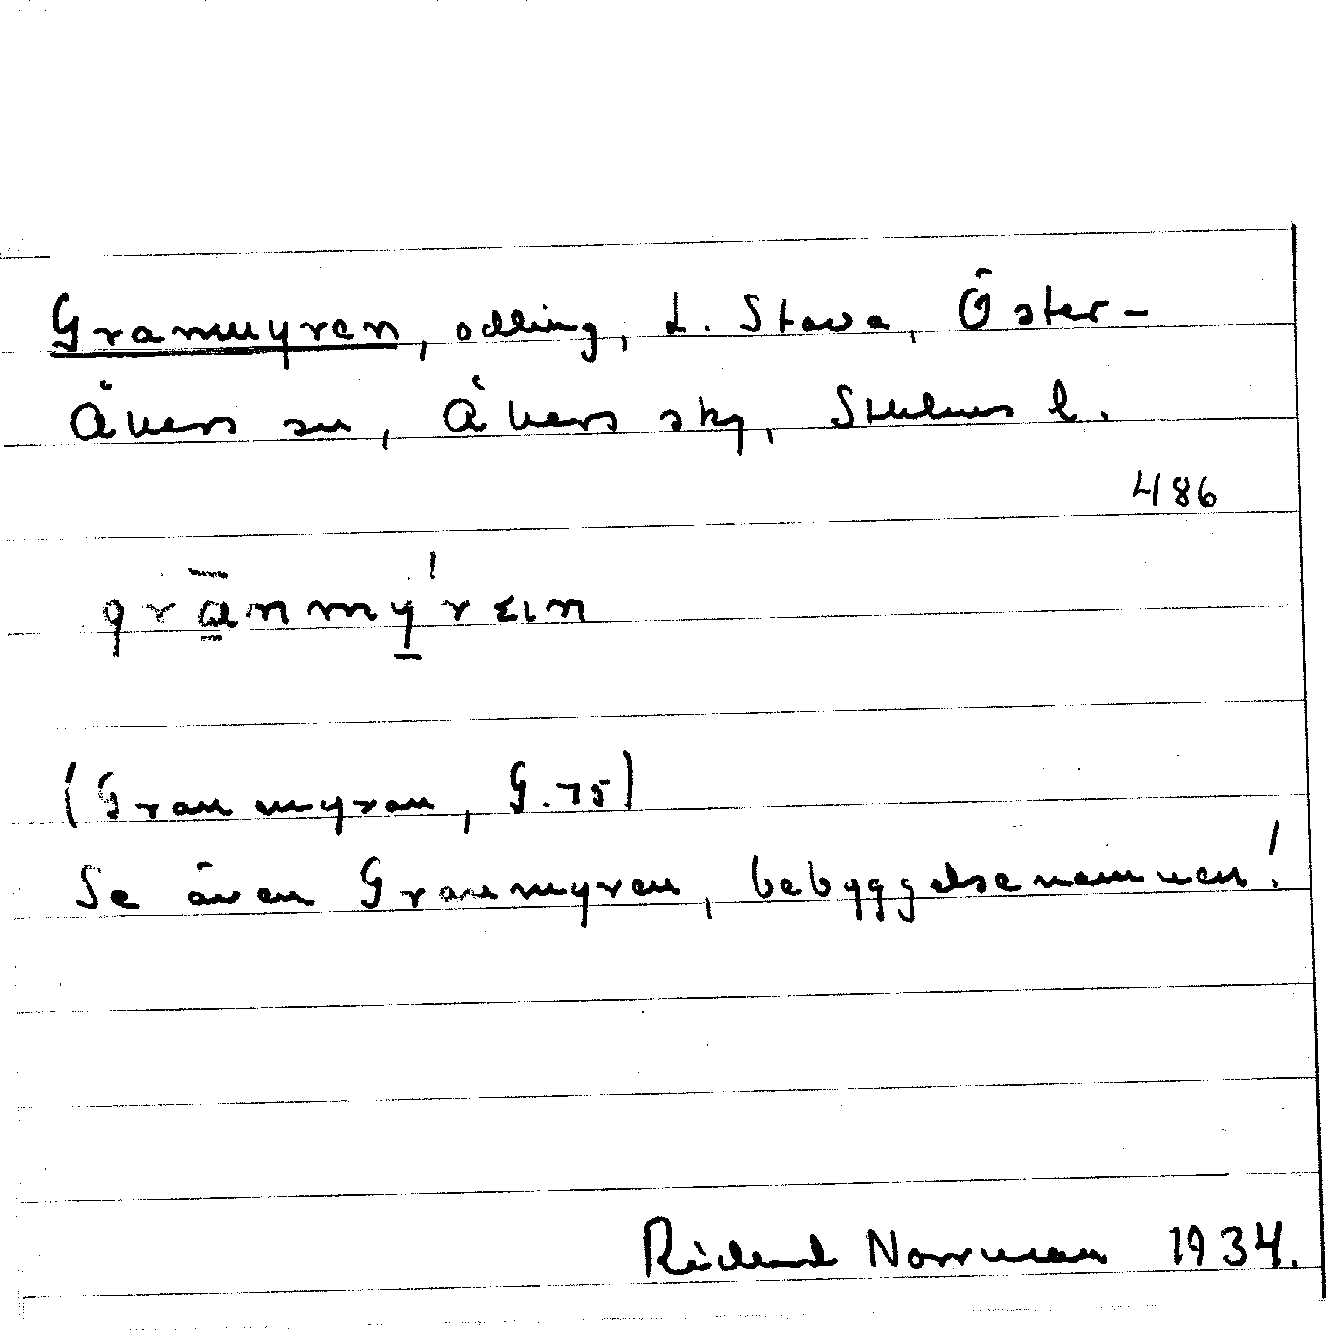 Granmyren, odling, L. Stava, Öster-
Åkers sn, Åkers skg, Sthlms l.
486
granmy'rɛın
(Gran myran, G. 75)
Se även Granmyren, bebyggelsenamnen!
Richard Norrman 1934.